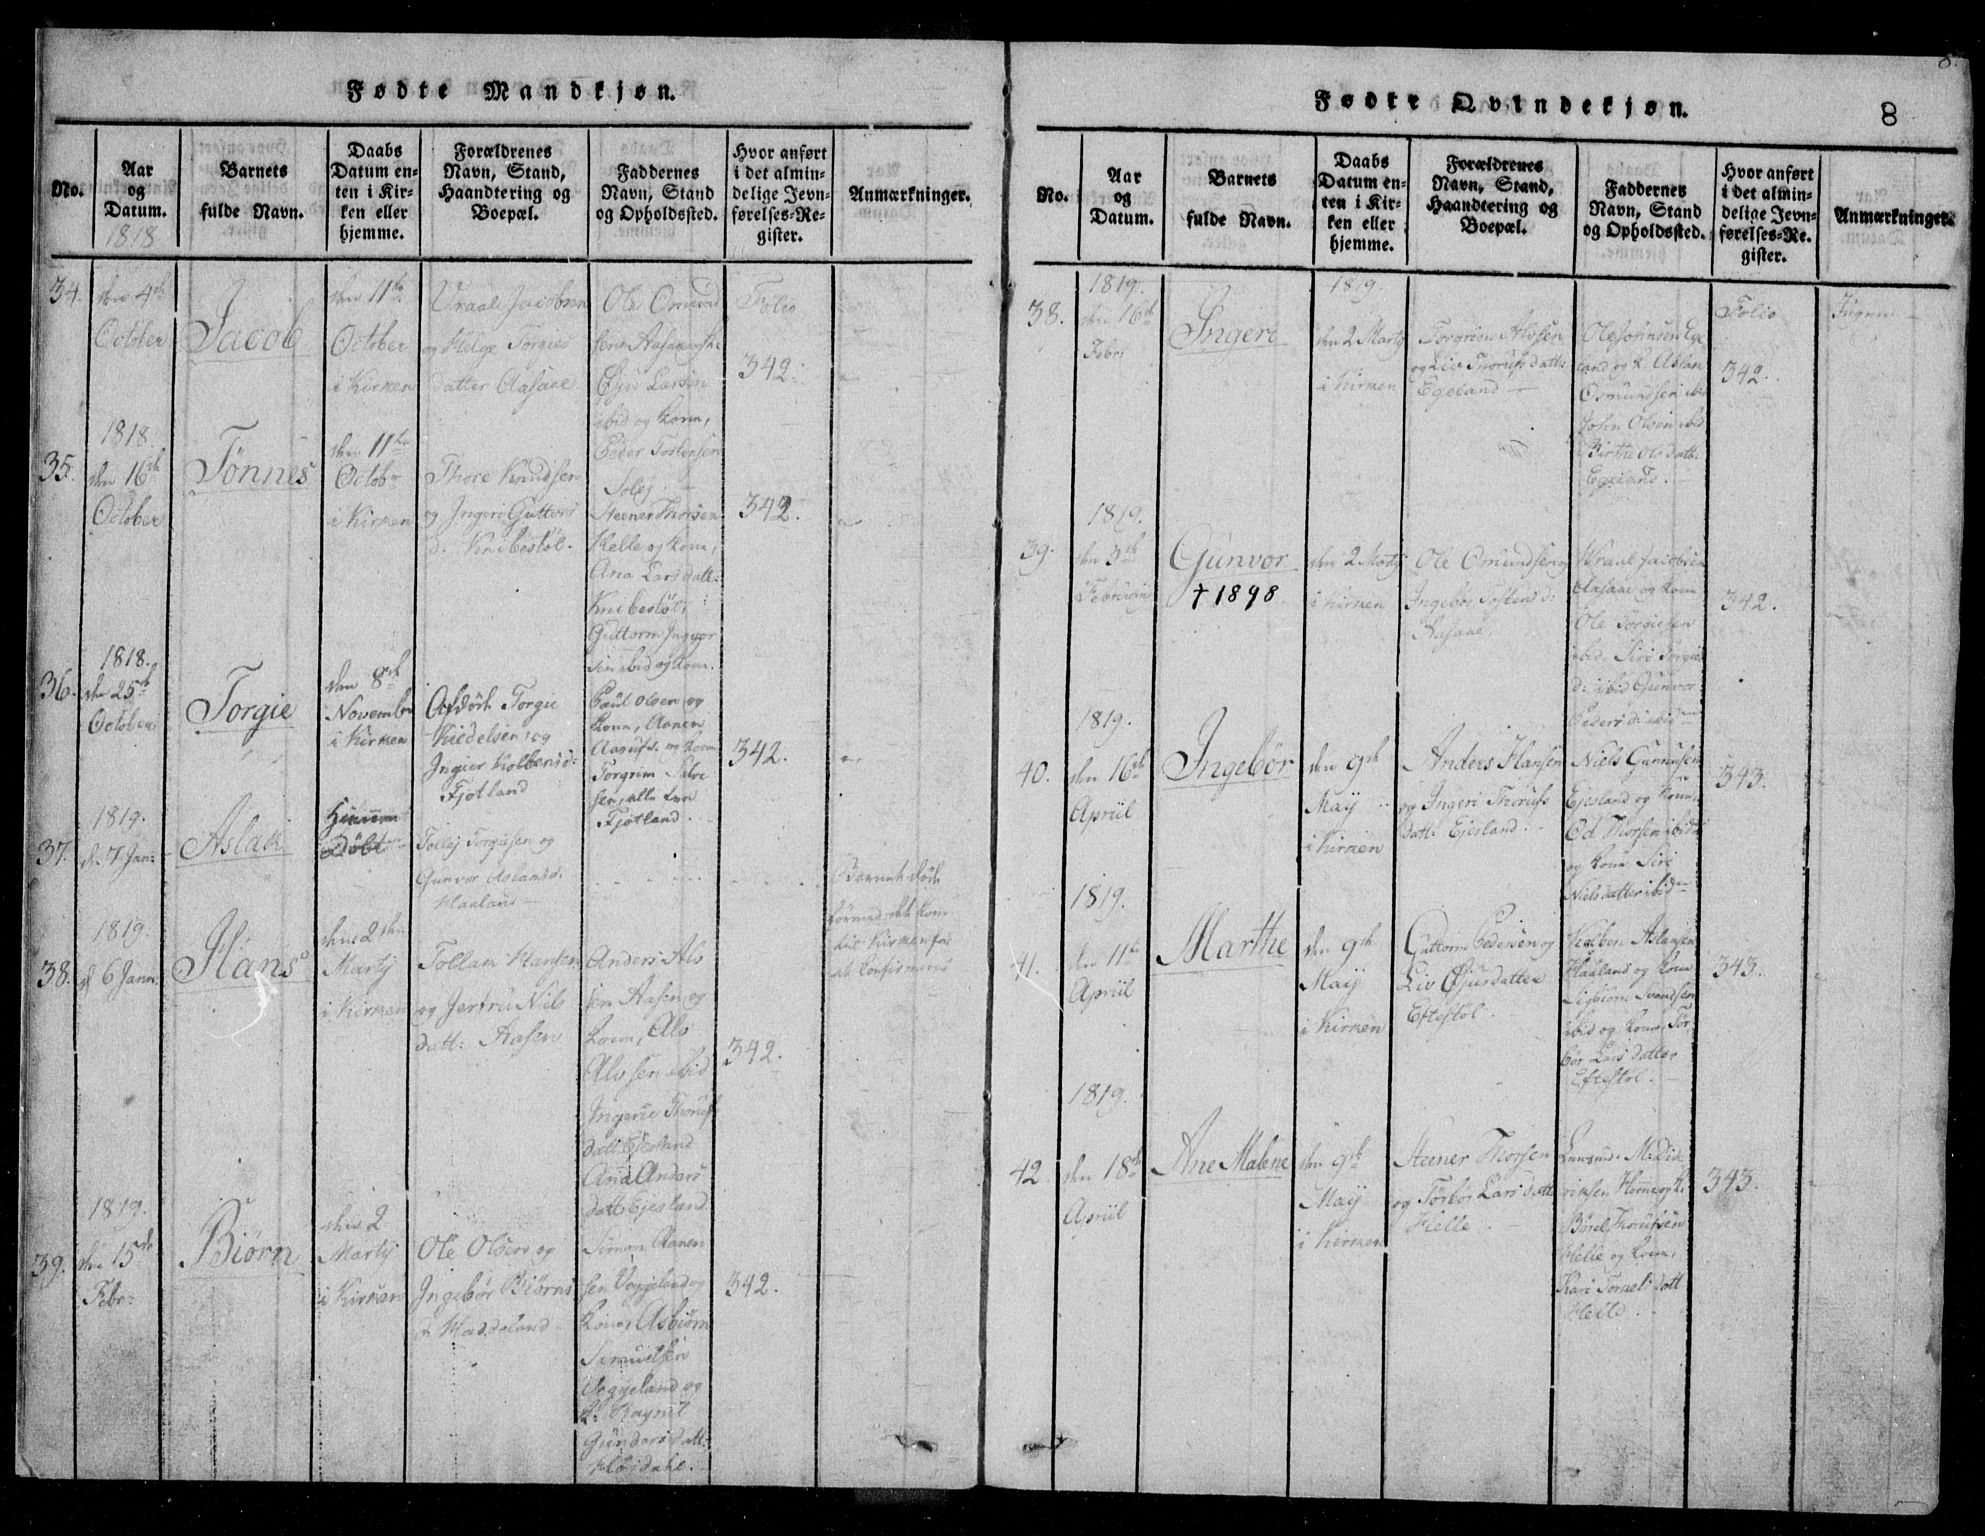 Fødte Mandkjøn.
No.
Aar
og
Datum.
1818
Barnets
fulde Navn.
Daabs
Datum en-
ten i Kir-
ken eller
hjemme.
Forældrenes
Navn, Stand,
Haandtering og
Boepæl.
Faddernes
Navn, Stand
og Opholdssted.
Hvor anført
i det almin-
delige Jevn-
førelses-Re-
gister.
Anmærkninger.
34.
den 4de
October
Jacob
den 11te
October
i Kirken
Vraal Jacobsen
og Helge Torgies
datter Aasaae
Ole Omund
sen Aasaae
Øju Larsen
ibid og Kone,
Peder Tostensen
Solej
Folio
342.
35.
1818.
den 16de
October
Tønnes
den 11te
Octobr
i Kirken
Thore Knudsen
og Ingeri Guttorms
d. Knibestøl.
Steener Thorsen
Helle og Kone,
Ana Lars datt:
Knibestøl,
Guttorm Ingvor
sen ibid og Kone.
342.
36.
1818.
den 25de
October
Torgie
den 8de
November
i Kirken
Afdøde Torgie
Kiedelsen og
Ingier Kolbensd:
Fjotland
Paul Olsen og
Kone, Aanen
Aagufs. og Kone
Torgrim Salve
sen, alle fra
Fjotland
342.
37.
1819.
d. 7 Jan:
Aslak
Hiemme
Døbt
Tollej Torgiesen og
Gunvor Aslaksd.
Haaland
Barnet døde
førend det kom
til Kirken for
at konfirmeres
38.
1819.
d 6 Janr.
Hans
den 2den
Martj
i Kirken
Tollak Hansen
og Jertru Niels
datt: Aasen
Anders Als
sen Aasen og
Kone, Als
Alvsen ibid
Ingerie Thorufs
datt: Ejesland
Ana Anders
datt: Ejesland
342.
39.
1819.
den 15de
Febr.
Biørn
den 2
Martj
i Kirken
Ole Olsen og
Ingebør Biørns
d. Haddeland
Simon Aanen
sen Veggeland og
Kone, Asbiørn
Simuelsen
Veggeland og
K: Ragnil
Gunders datt:
342.
Fødte Qvindekjøn.
8
No.
Aar
og
Datum.
Barnets
fulde Navn.
Daabs
Datum en-
ten i Kir-
ken eller
hjemme.
Forældrenes
Navn, Stand,
Haandtering og
Boepæl.
Faddernes
Navn, Stand
og Opholdssted.
Hvor anført
i det almin-
delige Jevn-
førelses-Re-
gister.
Anmærkninger.
38.
1819.
den 16de
Febr:
Ingeri
1819.
den 2 Martj
i Kirken
Torgrim Alvsen
og Liv Thorufs datt:
Egeland
Ole Johnsen Ege
land og K. Aslak
Osmundsen ibid
John Olsen ibid
Birthe Ols datt:
Egeland.
Folio
342.
Ingen
39.
1819.
den 3de
Februarij
Gunvor
† 1898
den 2 Martj
i Kirken
Ole Omundsen og
Ingebør Tostens d:
Aasaae
Wraal Jacobsen
Aasaae og Kone
Ole Torgiesen
ibid, Siri Torgies
d: ibid Gunvor
Peders d: ibidem
342.
40.
1819.
den 16de
Apriil
Ingebør
den 9de
May
i Kirken
Anders Hansen
og Ingeri Thorufs
datt: Ejesland.
Niels Gunnufsen
Ejesland og Kone,
Ed Thorsen ibidem
og Kone Siri
Nielsdatter ibidem
343.
41.
1819.
den 11te
Apriil
Marthe
den 9de
May
i Kirken
Guttorm Pedersen og
Liv Øjusdatter
Eftestøl
Kolben Aslaksen
Haaland og Kone
Sigbiørn Svendsen
ibid og Kone, Tør
bør Lars datter
Eftestøl.
343.
42
1819.
den 18de
Apriil
Ane Malene
den 9de
May
i Kirken
Steener Thorsen
og Tørbør Lars datt:
Helle
Lensmd. M. Did
riksen Homme og K.
Børel Thorufsen
Helle og Kone,
Kari Tornels datt
Helle
343.